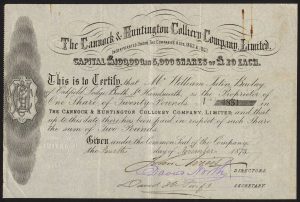 The Cannock & Huntington Colliery Company, Limited.
INCORPORATED UNDER THE COMPANIES ACTS, 1862 & 1867.
CAPITAL £100,000 IN 5,000 SHARES OF £20 EACH.
This is to Certify, that Mr William
of Lodge, Bath St Handsworth, is the Proprietor of
One Share of Twenty Pounds No
THE CANNOCK & HUNTINGTON COLLIERY COMPANY, LIMITED, and that
up to this date there has been paid in respect of such Share
the sum of Two Pounds.
Given under the Common Seal of the Company
the Fourth day of November 187
David North
DIRECTORS.
SECRETARY.